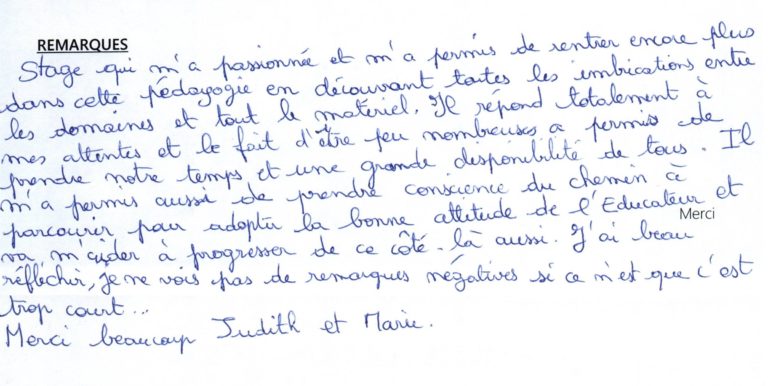 REMARQUES
Stage qui m'a passionnée et m'a permis de rentrer encore plus
dans cette pédagogie en découvrant toutes les imbrications entre
les domaines et tout le matériel. Il répond totalement à
mes attentes et le fait d'être peu nombreuses a permis de
prendre notre temps et une grande disponibilité de tous. Il
m'a permis aussi de prendre conscience du chemin à
parcourir pour adopter la bonne attitude de l'Educateur et
Merci
va m'aider à progresser de ce côté-là aussi. J'ai beau
réfléchir, je ne vois pas de remarques négatives si ce n'est que c'est
trop court...
Merci beaucoup Judith et Marie.